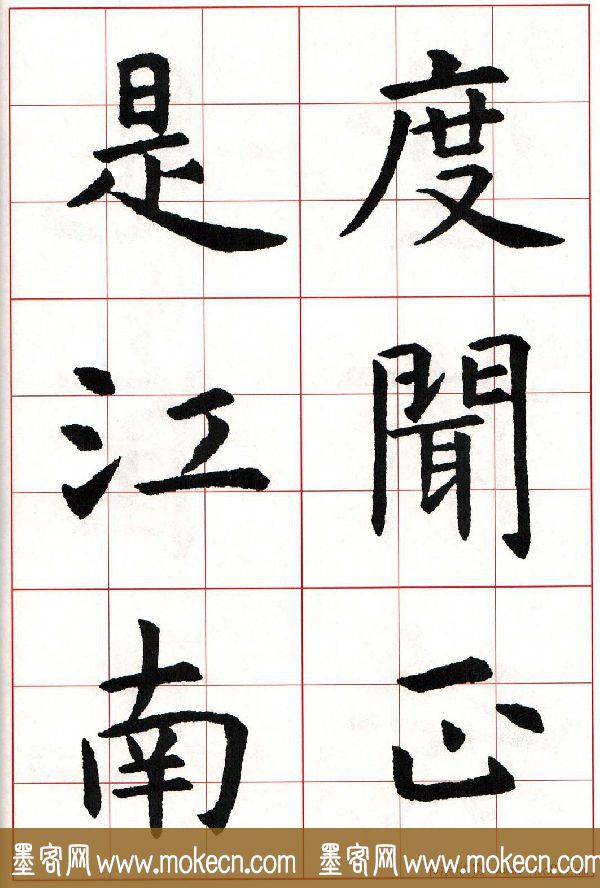 度聞正
是江南
墨客网 www.mokecn.com 墨客网 www.mokecn.com